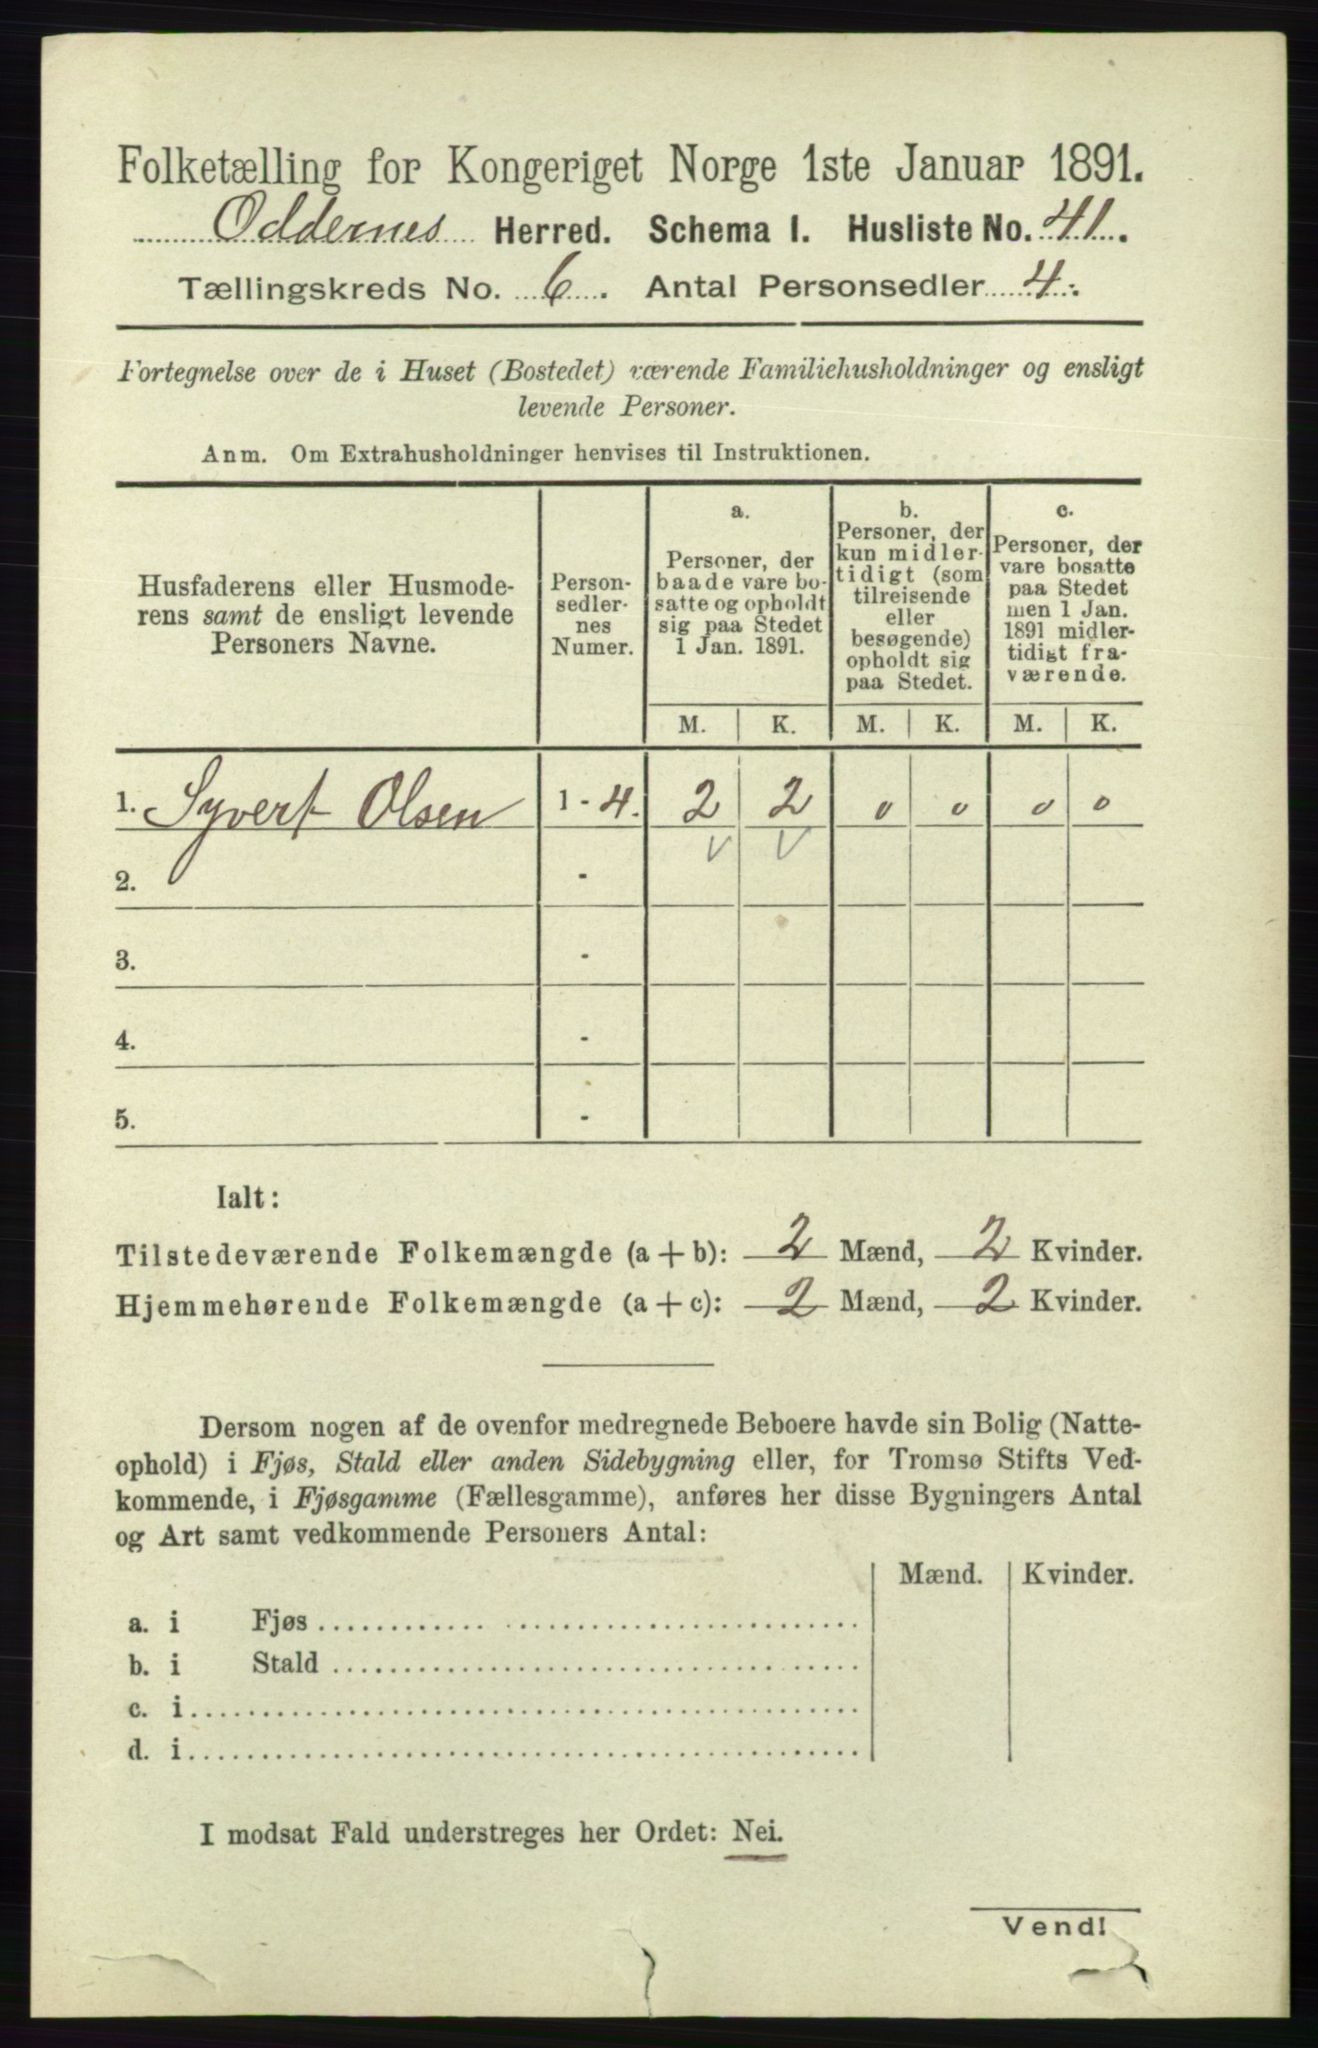 Folketælling for Kongeriget Norge 1ste Januar 1891.
Oddernes Herred. Schema I. Husliste No. 41.
Tællingskreds No. 6. Antal Personsedler 4.
Fortegnelse over de i Huset (Bostedet) værende Familiehusholdninger og ensligt
levende Personer.
Anm. Om Extrahusholdninger henvises til Instruktionen.
Husfaderens eller Husmode-
rens samt de ensligt levende
Personers Navne.
Person-
sedler-
nes
Numer.
a.
Personer, der
baade vare bo-
satte og opholdt
sig paa Stedet
1 Jan. 1891.
b.
Personer, der
kun midler-
tidigt (som
tilreisende
eller
besøgende)
opholdt sig
paa Stedet.
c.
Personer, der
vare bosatte
paa Stedet
men 1 Jan.
1891 midler-
tidigt fra-
værende.
M. K. M. K. M. K.
1. Syvert Olsen 1 - 4. 2 2 0 0 0 0
2. -
3. -
4. -
5. -
Ialt:
Tilstedeværende Folkemængde (a + b): 2 Mænd, 2 Kvinder.
Hjemmehørende Folkemængde (a + c): 2 Mænd, 2 Kvinder.
Dersom nogen af de ovenfor medregnede Beboere havde sin Bolig (Natte-
ophold) i Fjøs, Stald eller anden Sidebygning eller, for Tromsø Stifts Ved-
kommende, i Fjøsgamme (Fællesgamme), anføres her disse Bygningers Antal
og Art samt vedkommende Personers Antal:
Mænd. Kvinder.
a. i Fjøs
b. i Stald
c. i
d. i
I modsat Fald understreges her Ordet: Nei.
Vend!